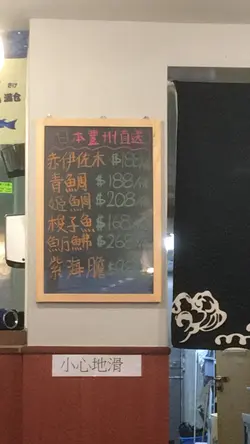 日本豐州直送
赤伊佐木 $188
青鯛 $188
姬鯛 $208
梭子魚 $168
魴鮄 $268
紫海膽
小心地滑